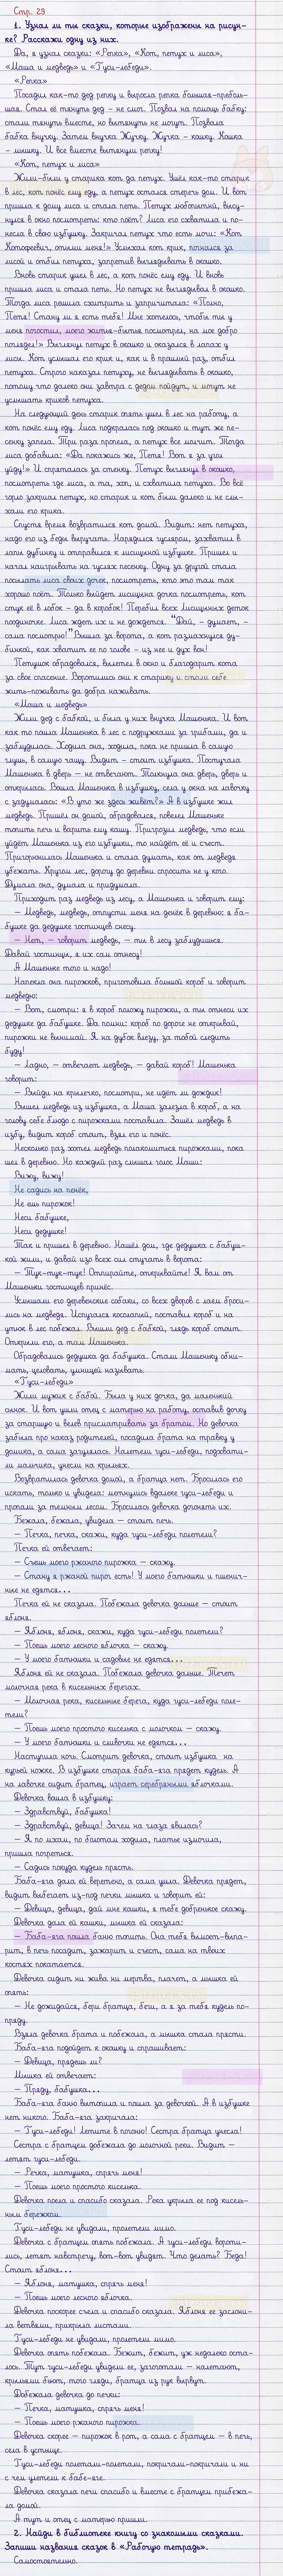 Стр. 29
1. Узнал ли ты сказки, которые изображены на рисун-
ке? Расскажи одну из них.
Да, я узнал сказки: «Репка», «Кот, петух и лиса»,
«Маша и медведь» и «Гуси-лебеди».
«Репка»
Посадил как-то дед репку и выросла репка большая-пребольш-
шая. Стал её тянуть дед – не смог. Позвал на помощь бабку:
стали тянуть вместе, но вытянуть не могут. Позвала
бабка внучку. Затем внучка Жучку. Жучка – кошку. Кошка
– мышку. И все вместе вытянули репку!
«Кот, петух и лиса»
Жили-были у старика кот да петух. Ушёл как-то старик
в лес, кот понёс ему еду, а петух остался стеречь дом. И вот
пришла к дому лиса и стала петь. Петух любопытный, высу-
нулся в окно посмотреть: кто поёт? Лиса его схватила и по-
несла в свою избушку. Закричал петух что есть мочи: «Кот
Котофеевич, отыми меня!» Услыхал кот крик, погнался за
лисой и отбил петуха, запретив выглядывать в окошко.
Вновь старик ушел в лес, а кот понёс ему еду. И вновь
пришла лиса и стала петь. Но петух не выглядывал в окошко.
Тогда лиса решила схитрить и запричитала: «Полно,
Петя! Стану ли я есть тебя! Мне хотелось, чтобы ты у
меня погостил, моего житья-бытья посмотрел, на мое добро
поглядел!» Выглянул петух в окошко и оказался в лапах у
лисы. Кот услышал его крик и, как и в прошлый раз, отбил
петуха. Строго наказал петуху, не выглядывать в окошко,
потому что далеко они завтра с дедом пойдут, и могут не
услышать криков петуха.
На следующий день старик опять ушел в лес на работу, а
кот понёс ему еду. Лиса подкралась под окошко и тут же пе-
сенку запела. Три раза пропела, а петух все молчит. Тогда
лиса добавила: «Да покажись же, Петя! Вот я за угол
уйду!» И спряталась за стенку. Петух выглянул в окошко,
посмотреть где лиса, а та, хоп, и схватила петуха. Во всё
горло закричал петух, но старик и кот были далеко и не слы-
хали его крика.
Спустя время возвратился кот домой. Видит: нет петуха,
надо его из беды выручать. Нарядился гусляром, захватил в
лапы дубинку и отправился к лисициной избушке. Пришел и
начал наигрывать на гуслях песенку. Одну за другой стала
посылать лиса своих дочек, посмотреть, кто это там так
хорошо поет. Только выйдет лисицына дочка посмотреть, кот
стук её в лобок – да в коробок! Перебил всех лисицыных деток
поодиночке. Лиса ждет их и не дождется. "Дай, – думает, –
сама посмотрю!" Вышла за ворота, а кот размахнулся ду-
бинкой, как хватит ее по голове – из нее и дух вон!
Петушок обрадовался, вылетел в окно и благодарит кота
за свое спасение. Воротились они к старику и стали себе
жить-поживать да добра наживать.
«Маша и медведь»
Жили дед с бабкой, и была у них внучка Машенька. И вот
как то пошла Машенька в лес с подружками за грибами, да и
заблудилась. Ходила она, ходила, пока не пришла в самую
глушь, в самую чащу. Видит – стоит избушка. Постучала
Машенька в дверь – не отвечают. Толкнула она дверь, дверь и
открылась. Вошла Машенька в избушку, села у окна на лавочку
с задумалась: «В кто же здесь живёт?» А в избушке жил
медведь. Пришёл он домой, обрадовался, повелел Машеньке
топить печь и варить ему кашу. Пригрозил медведь, что если
уйдёт Машенька из его избушки, то найдёт её и съест.
Пригорюнилась Машенька и стала думать, как от медведя
убежать. Кругом лес, дорогу до деревни спросить не у кого.
Думала она, думала и придумала.
Приходит раз медведь из лесу, а Машенька и говорит ему:
– Медведь, медведь, отпусти меня на денёк в деревню: я ба-
бушке да дедушке гостинцев снесу.
– Нет, – говорит медведь, – ты в лесу заблудишься.
Давай гостинцы, я их сам отнесу!
А Машеньке того и надо!
Напекла она пирожков, приготовила большой короб и говорит
медведю:
– Вот, смотри: я в короб положу пирожки, а ты отнеси их
дедушке да бабушке. Да помни: короб по дороге не открывай,
пирожки не вынимай. Я на дубок влезу, за тобой следить
буду!
– Ладно, – отвечает медведь, – давай короб! Машенька
говорит:
– Выйди на крылечко, посмотри, не идёт ли дождик!
Вышел медведь из избушки, а Маша залезла в короб, а на
голову себе блюдо с пирожками поставила. Зашёл медведь в
избу, видит короб стоит, взял его и понёс.
Несколько раз хотел медведь полакомиться пирожками, пока
шел в деревню. Но каждый раз слышал голос Маши:
Вижу, вижу!
Не садись на пенёк,
Не ешь пирожок!
Неси бабушке,
Неси дедушке!
Так и пришел в деревню. Нашёл дом, где дедушка с бабуш-
кой жили, и давай изо всех сил стучать в ворота:
– Тук-тук-тук! Отпирайте, открывайте! Я вам от
Машеньки гостинцев принёс.
Услышали его деревенские собаки, со всех дворов с лаем броси-
лись на медведя. Испугался косолапый, поставил короб и на
утёк в лес побежал. Вышли дед с бабкой, глядь короб стоит.
Открыли его, а там Машенька.
Обрадовались дедушка да бабушка. Стали Машеньку обни-
мать, целовать, умницей называть.
«Гуси-лебеди»
Жили мужик с бабой. Была у них дочка, да маленький
сынок. И вот ушли отец с матерью на работу, оставив дочку
за старшую и велев присматривать за братом. Но девочка
забыла про наказ родителей, посадила брата на травку у
дошка, а сама загулялась. Налетели гуси-лебеди, подхвати-
ли мальчика, унесли на крыльях.
Возвратилась девочка домой, а братца нет. Бросилась его
искать, только и увидела: метнулись вдалеке гуси-лебеди и
пропали за темным лесом. Бросилась девочка догонять их.
Бежала, бежала, увидела – стоит печь.
– Печка, печка, скажи, куда гуси-лебеди полетели?
Печка ей отвечает:
– Съешь моего ржаного пирожка – скажу.
– Стану я ржаной пирог есть! У моего батюшки и пшенич-
ные не едятся...
Печка ей не сказала. Побежала девочка дальше – стоит
яблоня.
– Яблоня, яблоня, скажи, куда гуси-лебеди полетели?
– Поешь моего лесного яблочка – скажу.
– У моего батюшки и садовые не едятся...
Яблоня ей не сказала. Побежала девочка дальше. Течет
молочная река в кисельных берегах.
– Молочная река, кисельные берега, куда гуси-лебеди поле-
тели?
– Поешь моего простого киселька с молочком – скажу.
– У моего батюшки и сливочки не едятся...
Наступила ночь. Смотрит девочка, стоит избушка на
курьей ножке. В избушке старая баба-яга прядет кудель. А
на лавочке сидит братец, играет серебряными яблочками.
Девочка вошла в избушку:
– Здравствуй, бабушка!
– Здравствуй, девица! Зачем на глаза явилась?
– Я по мхам, по болотам ходила, платье измочила,
пришла погреться.
– Садись покуда кудель прясть.
Баба-яга дала ей веретено, а сама ушла. Девочка прядет,
видит выбегает из-под печки мышка и говорит ей:
– Девица, девица, дай мне кашки, я тебе добренькое скажу.
Девочка дала ей кашки, мышка ей сказала:
– Баба-яга пошла баню топить. Она тебя вымоет-выпа-
рит, в печь посадит, зажарит и съест, сама на твоих
костях покатается.
Девочка сидит ни жива ни мертва, плачет, а мышка ей
опять:
– Не дожидайся, бери братца, беги, а я за тебя кудель по-
пряду.
Взяла девочка брата и побежала, а мышка стала прясть.
Баба-яга подойдет к окошку и спрашивает:
– Девица, прядешь ли?
Мышка ей отвечает:
– Пряду, бабушка...
Баба-яга баню вытопила и пошла за девочкой. А в избушке
нет никого. Баба-яга закричала:
– Гуси-лебеди! Летите в погоню! Сестра братца унесла!
Сестра с братцем добежала до молочной реки. Видит –
летят гуси-лебеди.
– Речка, матушка, спрячь меня!
– Поешь моего простого киселька.
Девочка поела и спасибо сказала. Река укрыла ее под кисель-
ным бережком.
Гуси-лебеди не увидали, пролетели мимо.
Девочка с братцем опять побежала. А гуси-лебеди вороти-
лись, летят навстречу, вот-вот увидят. Что делать? Беда!
Стоит яблоня...
– Яблоня, матушка, спрячь меня!
– Поешь моего лесного яблочка.
Девочка поскорее съела и спасибо сказала. Яблоня ее заслони-
ла ветвями, прикрыла листами.
Гуси-лебеди не увидали, пролетели мимо.
Девочка опять побежала. Бежит, бежит, уж недалеко оста-
лось. Тут гуси-лебеди увидели ее, загоготали – налетают,
крыльями бьют, того гляди, братца из рук вырвут.
Добежала девочка до печки:
– Печка, матушка, спрячь меня!
– Поешь моего ржаного пирожка.
Девочка скорее – пирожок в рот, а сама с братцем – в печь,
села в устьице.
Гуси-лебеди полетали-полетали, покричали-покричали и ни
с чем улетели к бабе-яге.
Девочка сказала печи спасибо и вместе с братцем прибежа-
ла домой.
А тут и отец с матерью пришли.
2. Найди в библиотеке книгу со знакомыми сказками.
Запиши названия сказок в «Рабочую тетрадь».
Самостоятельно.